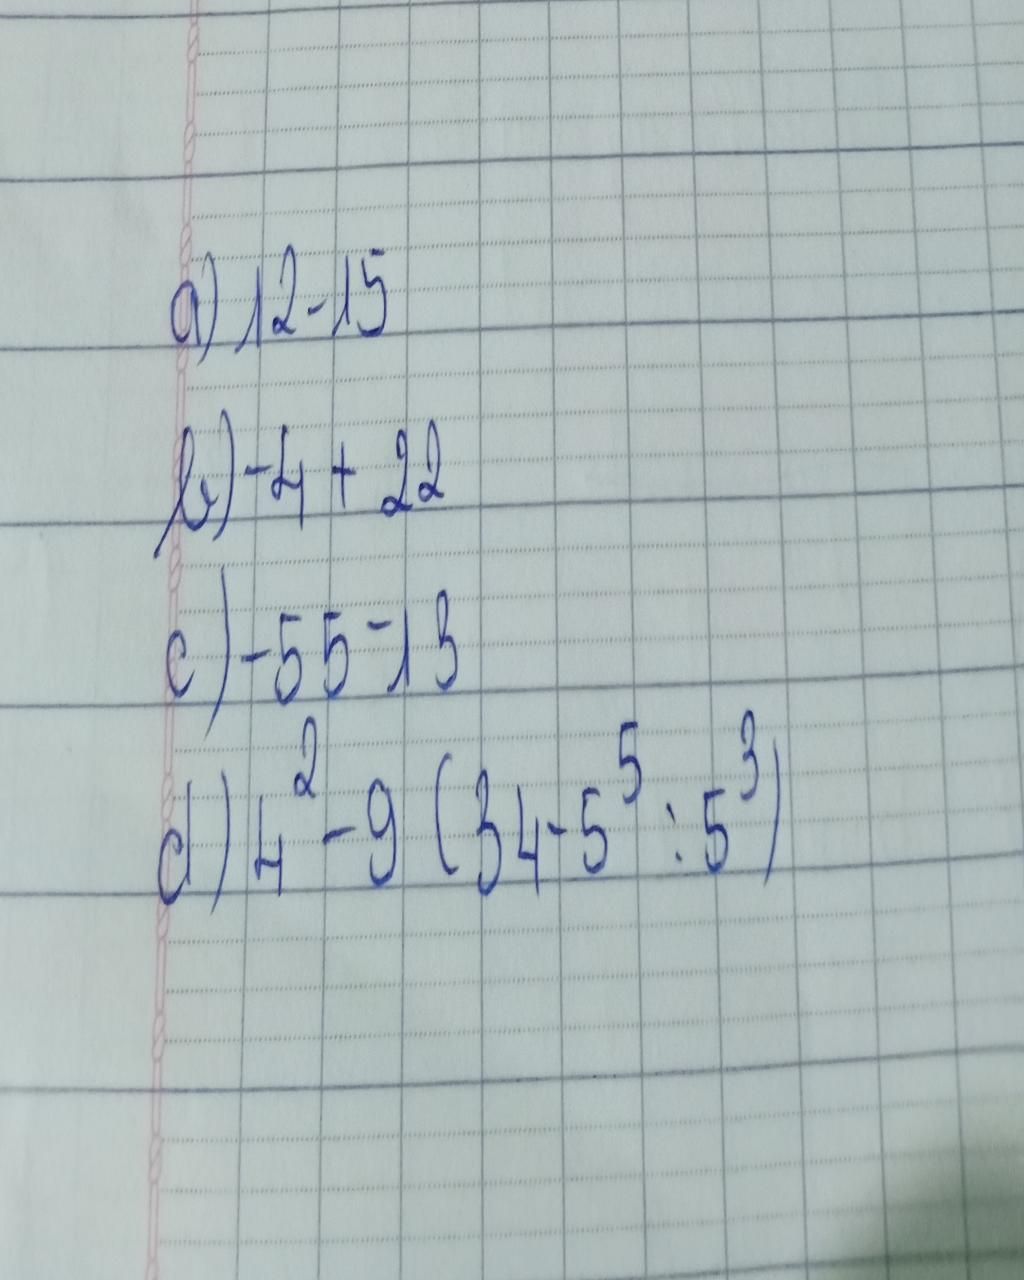 a) 12-15
b) -4 + 22
c) -55-13
d) 4² - 9 (34-5⁵ : 5³)